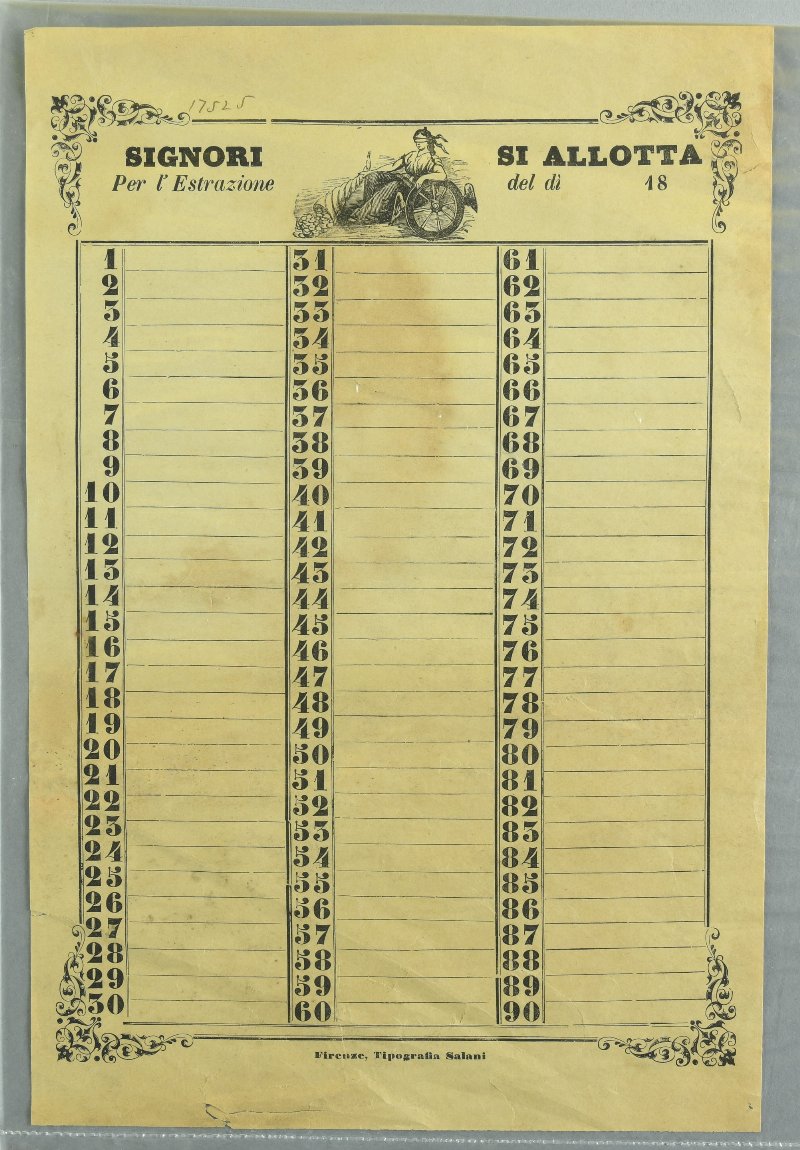 17525
SIGNORI SI ALLOTTA
Per l' Estrazione del dì 18
1
2
3
4
5
6
7
8
9
10
11
12
13
14
15
16
17
18
19
20
21
22
23
24
25
26
27
28
29
30
31
32
33
34
35
36
37
38
39
40
41
42
43
44
45
46
47
48
49
50
51
52
53
54
55
56
57
58
59
60
61
62
63
64
65
66
67
68
69
70
71
72
73
74
75
76
77
78
79
80
81
82
83
84
85
86
87
88
89
90
Firenze, Tipografia Salani